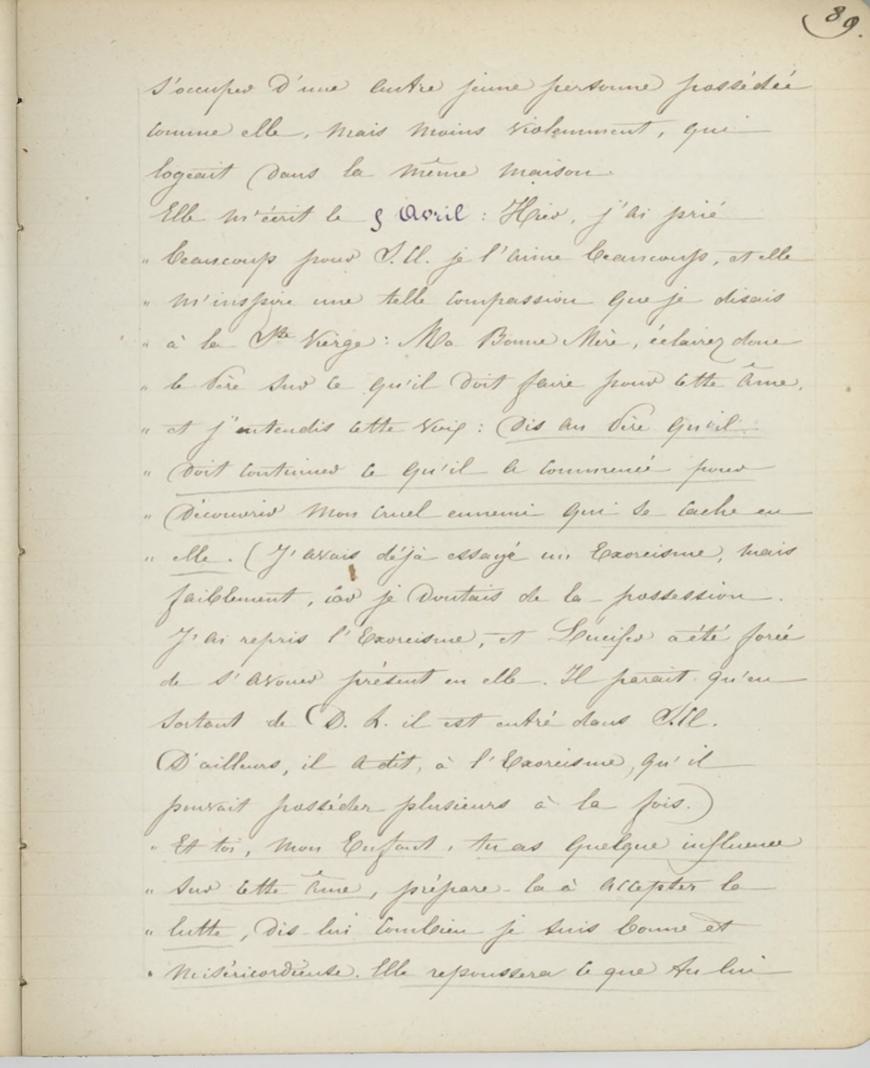 89.
s'occuper d'une autre jeune personne possédée
comme elle, mais moins violemment, qui
logeait dans la même maison.
Elle m'écrit le 5 Avril : Hier, j'ai prié
" beaucoup pour je l'aime beaucoup, et elle
" m'inspire une telle compassion que je disais
" à la Ste Vierge : Ma Bonne Mère, éclairez donc
" le Père sur ce qu'il doit faire pour cette âme,
" et j'entendis cette voix : Dis au Père qu'il
" doit continuer ce qu'il a commencé pour
" Découvrir mon cruel ennemi qui se cache en
" elle. (J'avais déjà essayé un Exorcisme, mais
faiblement, car je doutais de la possession.
J'ai repris l'Exorcisme, et Lucifer a été forcé
de s'avouer présent en elle. Il parait qu'en
sortant de D. K. il est entré dans
D'ailleurs, il a dit, à l'Exorcisme, qu'il
pouvait posséder plusieurs à la fois.)
" Et toi, mon Enfant, tu as quelque influence
" sur cette âme, prépare-la à accepter la
" lutte, dis-lui combien je suis bonne et
" miséricordieuse. Elle repoussera ce que tu lui